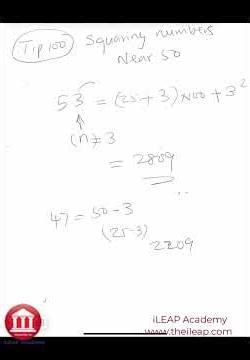 Tip 100 Squaring numbers
Near 50
53² = (25 + 3) × 100 + 3²
(n) = 3
= 2809
47 = 50 - 3
(25-3)
2209
iLEAP Academy
iLEAP Academy
www.theileap.com